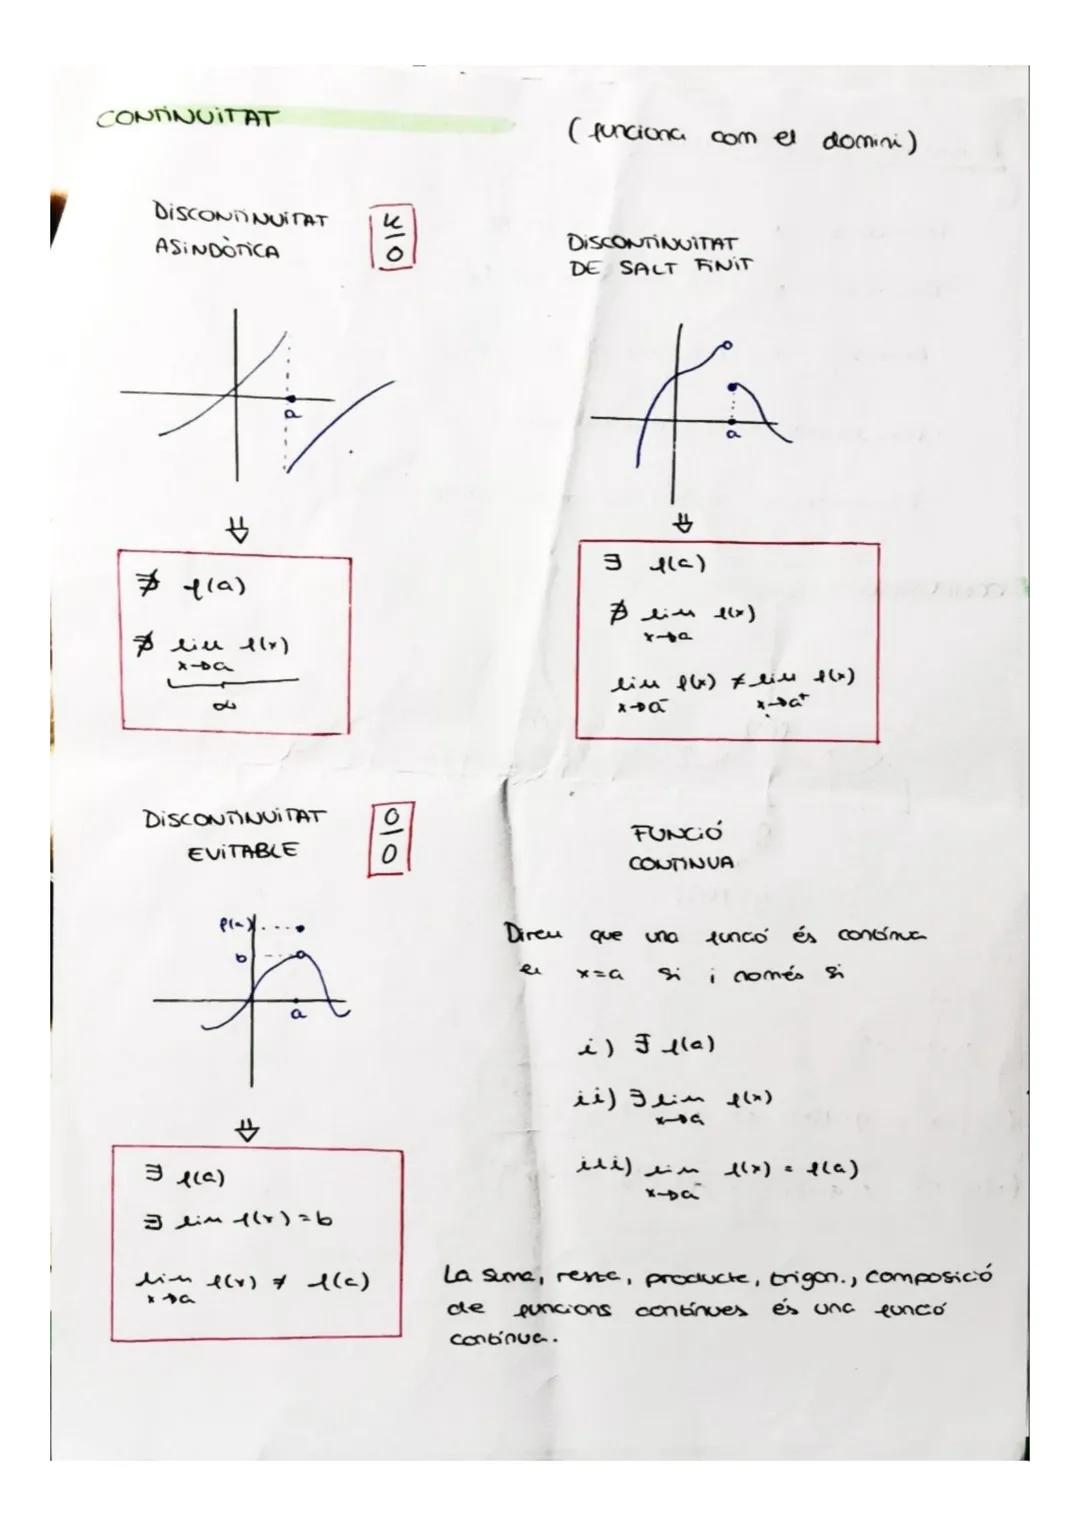 CONTINUITAT
(funciona com el domini)
DISCONTINUITAT
ASINDÒTICA
K
0
DISCONTINUITAT
DE SALT FINIT
a
a
∄ f(a)
∄ lim f(x)
x→a
∞
∃ f(a)
∄ lim f(x)
x→a
lim f(x) ≠ lim f(x)
x→a⁻ x→a⁺
DISCONTINUITAT
EVITABLE
0
0
f(a)
b
a
∃ f(a)
∃ lim f(x) = b
lim f(x) ≠ f(a)
x→a
FUNCIÓ
CONTINUA
Direm que una funció és contínua
en x=a si i només si
i) ∃ f(a)
ii) ∃ lim f(x)
x→a
iii) lim f(x) = f(a)
x→a
La suma, resta, producte, trigon., composició
de funcions contínues és una funció
contínua.